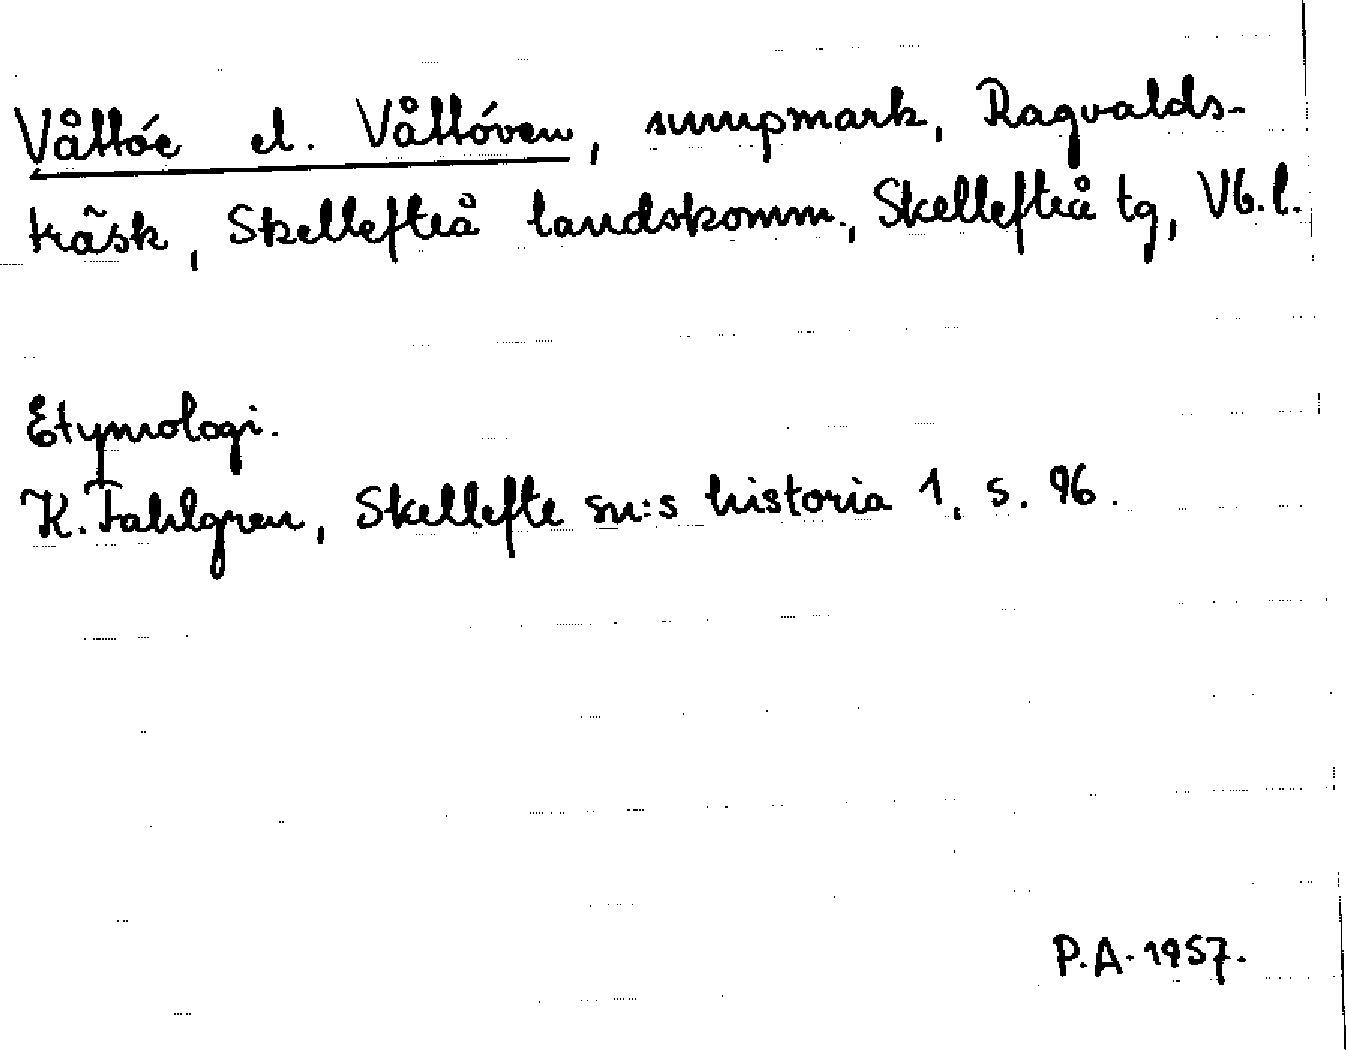 Våttóe el. Våttóven, sumpmark, Ragvalds-
träsk, Skellefteå landskomm., Skellefteå tg, Vb.l.
Etymologi.
K. Fahlgren, Skellefte sn:s historia 1, s. 96.
P.A. 1957.